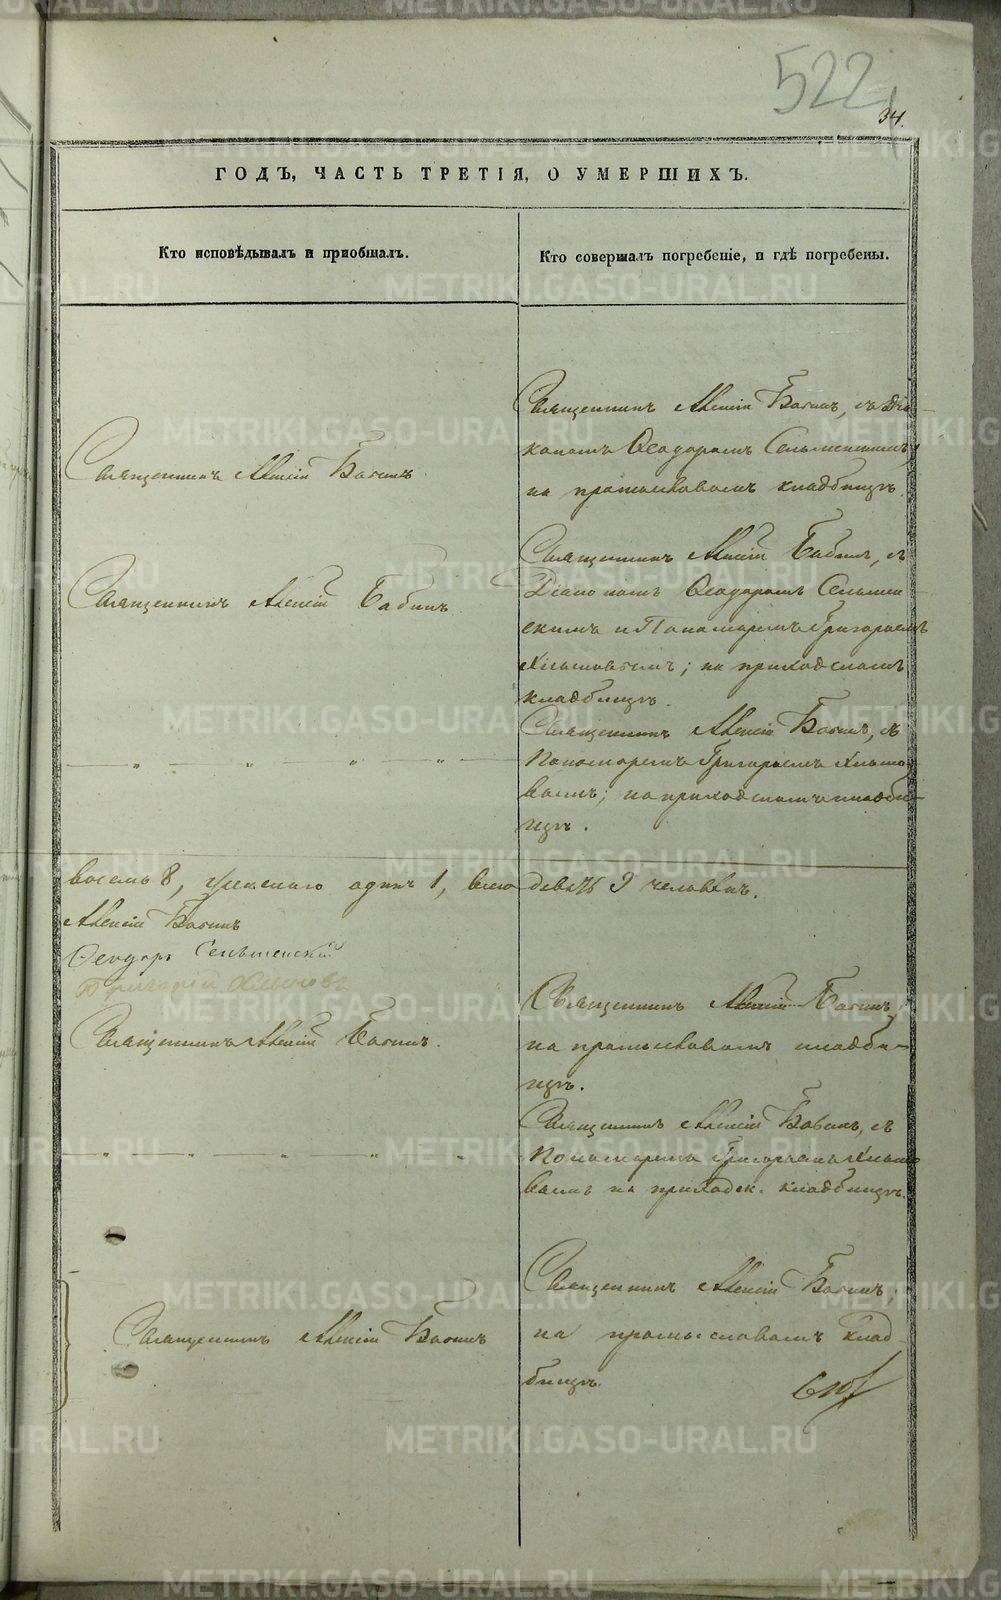 522
34.
ГОДЪ, ЧАСТЬ ТРЕТІЯ, О УМЕРШИХЪ.
Кто исповѣдывалъ и пріобщалъ.
Кто совершалъ погребеніе, и гдѣ погребены.
Священникъ Алексій Бабинъ, съ Діа-
кономъ Ѳеодоромъ
на промысловомъ кладбищѣ.
Священникъ Алексій Бабинъ.
Священникъ Алексій Бабинъ, съ
Діакономъ Ѳеодоромъ
скимъ и Пономаремъ Григорьемъ
Хлыновымъ; на приходскомъ
кладбищѣ.
Священникъ Алексій Бабинъ
Священникъ Алексій Бабинъ, съ
Пономаремъ Григорьемъ Хлыно
вымъ; на приходскомъ кладби-
щѣ.
— „ — „ — „ — „ —
восемь 8, женскаго одинъ 1, всего девять 9 человѣкъ.
Алексій Бабинъ
Ѳеодоръ
Григорій Хлыновъ
Священникъ Алексій Бабинъ.
Священникъ Алексій Бабинъ,
на промысловомъ кладби-
щѣ.
Священникъ Алексій Бабинъ, съ
Пономаремъ Григорьемъ Хлыно
вымъ на приходск. кладбищѣ.
— „ — „ — „ — „
Священникъ Алексій Бабинъ
Священникъ Алексій Бабинъ,
на промысловомъ клад-
бищѣ.
METRIKI.GASO-URAL.RU